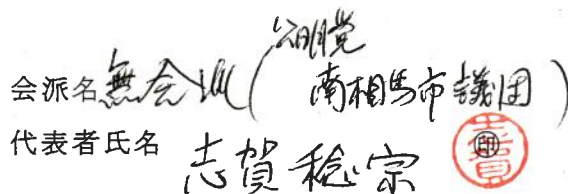 会派名 無会派(公明党
南相馬市議団)
代表者氏名 志賀稔宗 ㊞
志賀